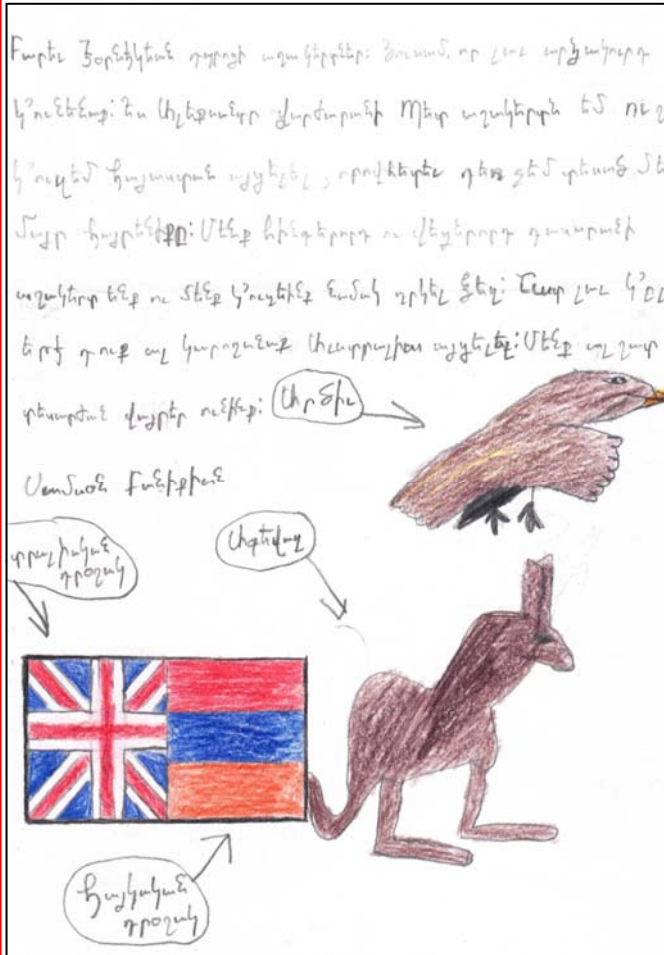 Բարեւ Յօրենկեան դպրոցի աշակերտներ: Յուսամ, որ լաւ արձակուրդ
կ՚ունենաք: Ես Ալեքսանդր վարժարանի Մեար աշակերտն եմ ու շ
կ՚ուզեմ հայաստան այցելել, որովհետեւ դեռ չեմ տեսած մե
մայր հայրենիքը: Մենք հինգերորդ ու վեցերորդ դասարանի
աշակերտ ենք ու մենք կ՚ուզեինք նամակ ղրկել ձեզ: Շատ լաւ կ՚ըլ
եթէ դուք ալ կարողանաք Աւստրալիա այցելել: Մենք ալ շատ
տեսարժան վայրեր ունինք:
Արծիւ
Սամսօն Բանիքիան
տրալիական
դրօշակ
Ագեվազ
հայկական
դրօշակ